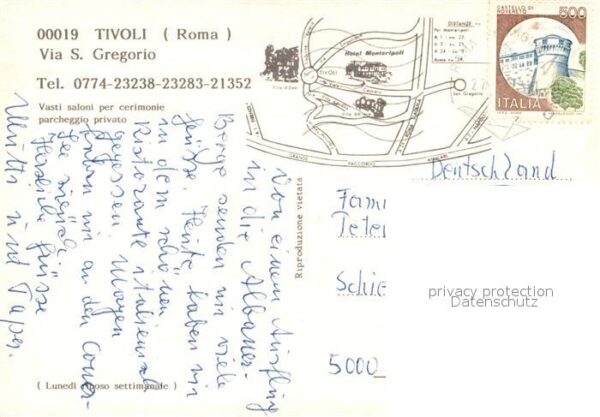 00019 TIVOLI ( Roma )
Via S. Gregorio
Tel. 0774-23238-23283-21352
Vasti saloni per cerimonie
parcheggio privato
( Lunedì riposo settimanale )
Hotel Monteripoli
TIVOLI
San Gregorio
GRANDE RACCORDO ANULARE
DISTANZE
Riproduzione vietata
CASTELLO DI
ROVERETO
500
ITALIA
Von einem Ausflug
in die Albaner-
Berge senden wir viele
Grüsse. Heute haben wir
in dem schönen
Ristorante italienisch
gegessen. Morgen
fahren wir an den Comer-
See zurück.
Herzliche Grüsse
Mutti und Papa.
Deutschland
Fami
Peter
Schie
5000
privacy protection
Datenschutz